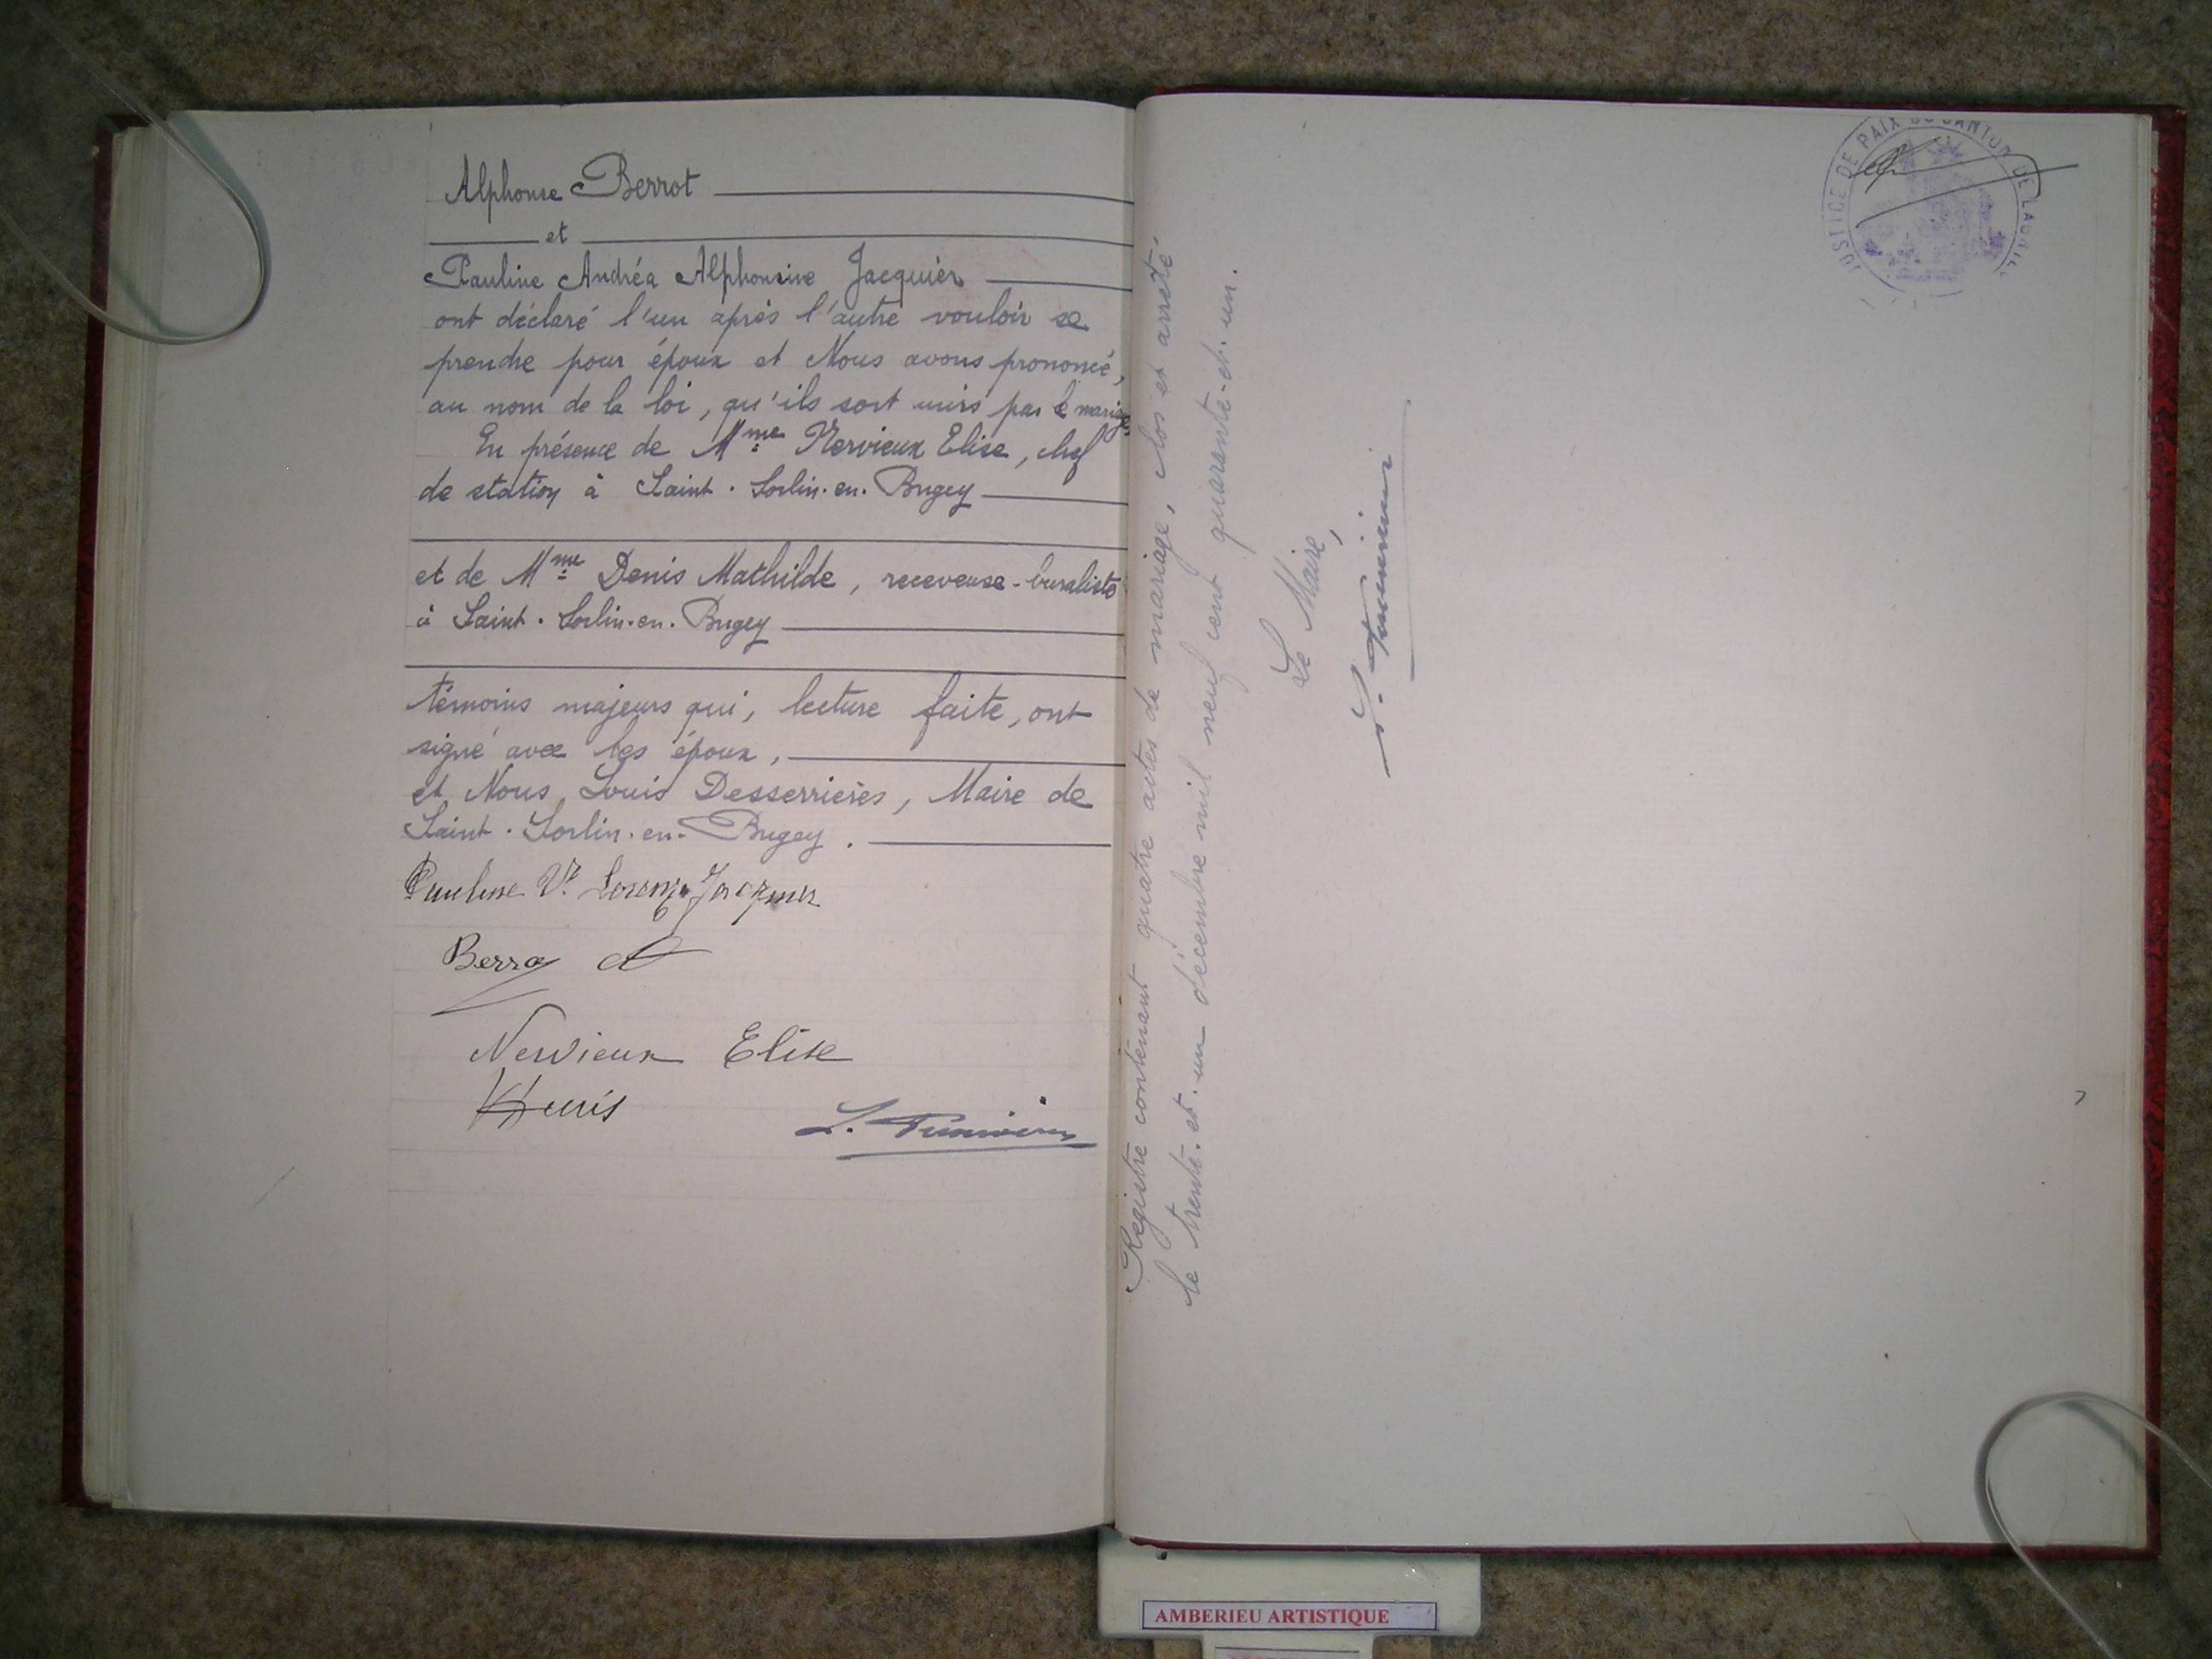 Alphonse Berrot
et
Pauline Andréa Alphonsine Jacquier
ont déclaré l'un après l'autre vouloir se
prendre pour époux et Nous avons prononcé,
au nom de la loi, qu'ils sont unis par le mariage,
En présence de Mme Nervieux Elise, chef
de station à Saint-Sorlin-en-Bugey
et de Mme Denis Mathilde, receveuse-buraliste
à Saint-Sorlin-en-Bugey
témoins majeurs qui, lecture faite, ont
signé avec les époux,
et Nous Louis Desserrières, Maire de
Saint-Sorlin-en-Bugey.
Pauline Ve
Nervieux Elise
Registre contenant quatre actes de mariage, clos et arrêté,
le trente-et-un décembre mil neuf cent quarante-et-un.
Le Maire,
JUSTICE DE PAIX DU CANTON DE LAGNIEU
AMBERIEU ARTISTIQUE